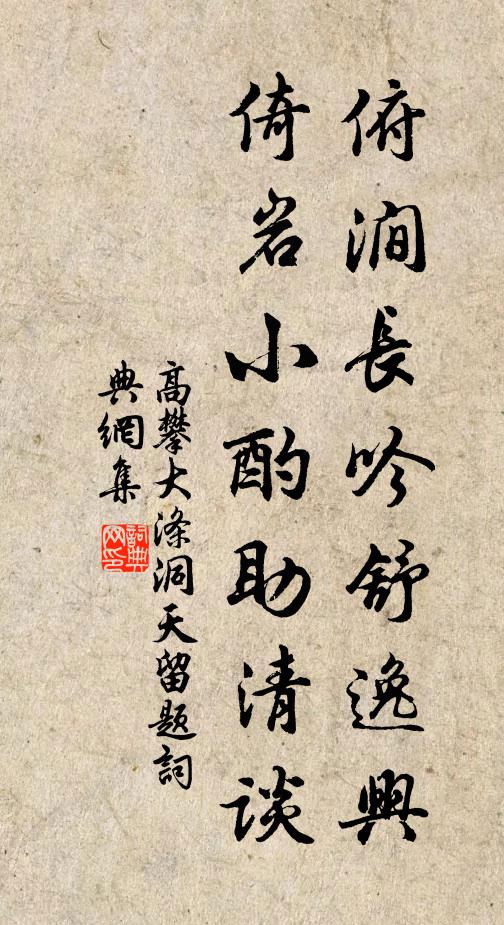 俯涧長吟舒逸興
倚岩小酌助清谈
高攀大涤洞天留题詞
典網集
詞典
网印